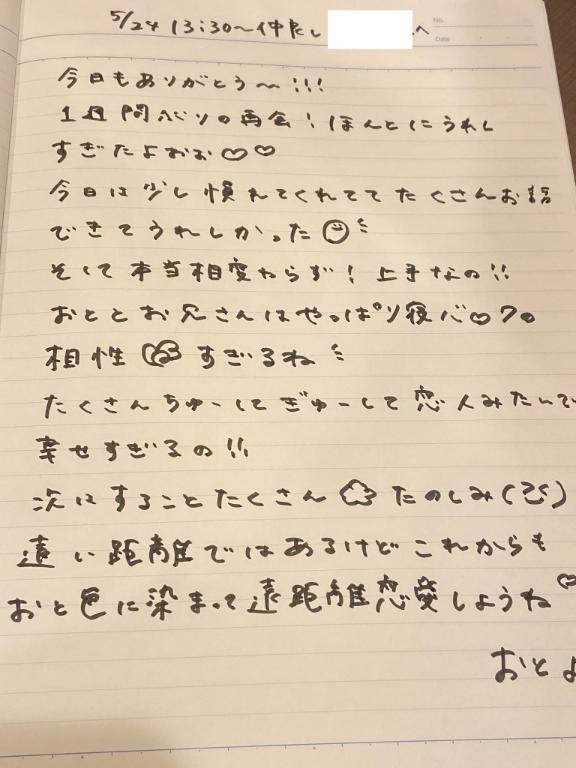 5/24 13:30〜仲良し へ
No.
Date
今日もありがとう〜!!!
1週間ぶりの再会!ほんとにうれし
すぎたよおお♡♡
今日は少し慣れてくれててたくさんお話
できてうれしかった
そして本当相変わらず!上手なの!!
おととお兄さんはやっぱり寝バ♡ク。
相性 すぎるね
たくさんちゅーしてぎゅーして恋人みたいで
幸せすぎるの!!
次にすることたくさん たのしみ
遠い距離ではあるけどこれからも
おと色に染まって遠距離恋愛しようね♡
おとよ